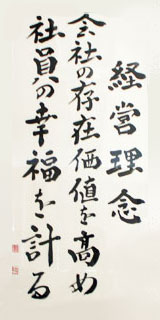 経営理念
会社の存在価値を高め
社員の幸福を計る